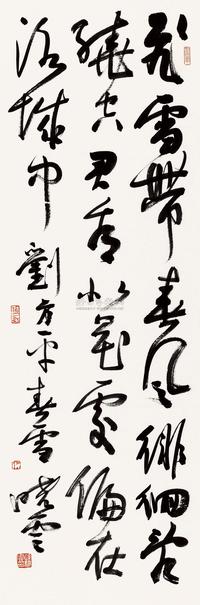 飛雪帶春風徘徊亂
繞空君看似花處偏在
洛城中 劉方平春雪 曉雲